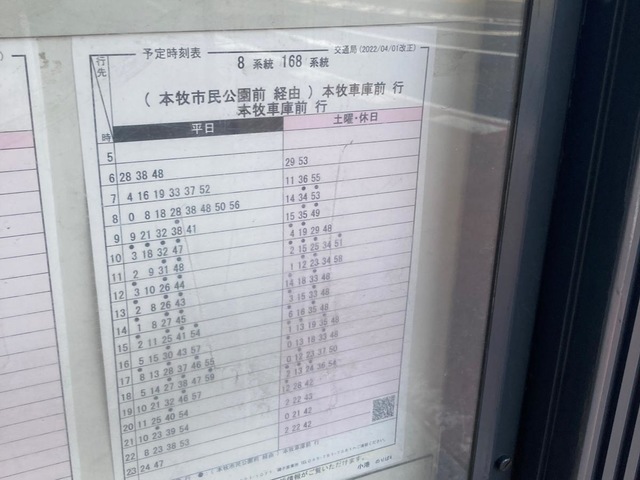 予定時刻表
交通局(2022/04/01改正)
8 系統 168 系統
行先
( 本牧市民公園前 経由 ) 本牧車庫前 行
本牧車庫前 行
時 平日 土曜・休日
5
6 28 38 48 29 53
7 4 16 19 33 37 52 11 36 55
8 0 8 18 28 38 48 50 56 14 34 53
9 9 21 32 38 41 15 35 49
10 3 18 32 47 4 19 29 48
11 2 9 31 48 2 15 25 34 51
12 3 10 26 44 1 12 23 34 58
13 2 8 26 43 14 18 33 48
14 1 8 27 45 3 15 33 48
15 2 11 25 41 54
16 5 15 30 43 57
17 8 13 28 37 46 55
18 5 14 27 38 47 59
19 10 21 32 46 57 12 28 42
20 11 25 40 54 2 22 43
21 10 23 39 54 0 21 42
22 8 23 36 53 2 22 42
23 24 47
小港